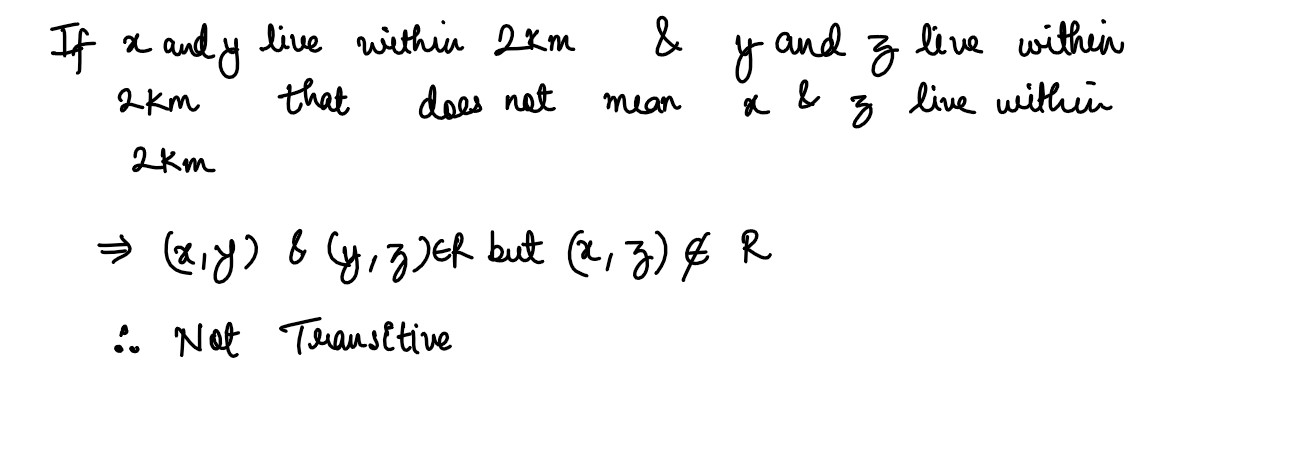 If x and y live within 2km & y and z live within
2km that does not mean x & z live within
2km
⇒ (x,y) & (y,z)∈R but (x,z) ∉ R
∴ Not Transitive